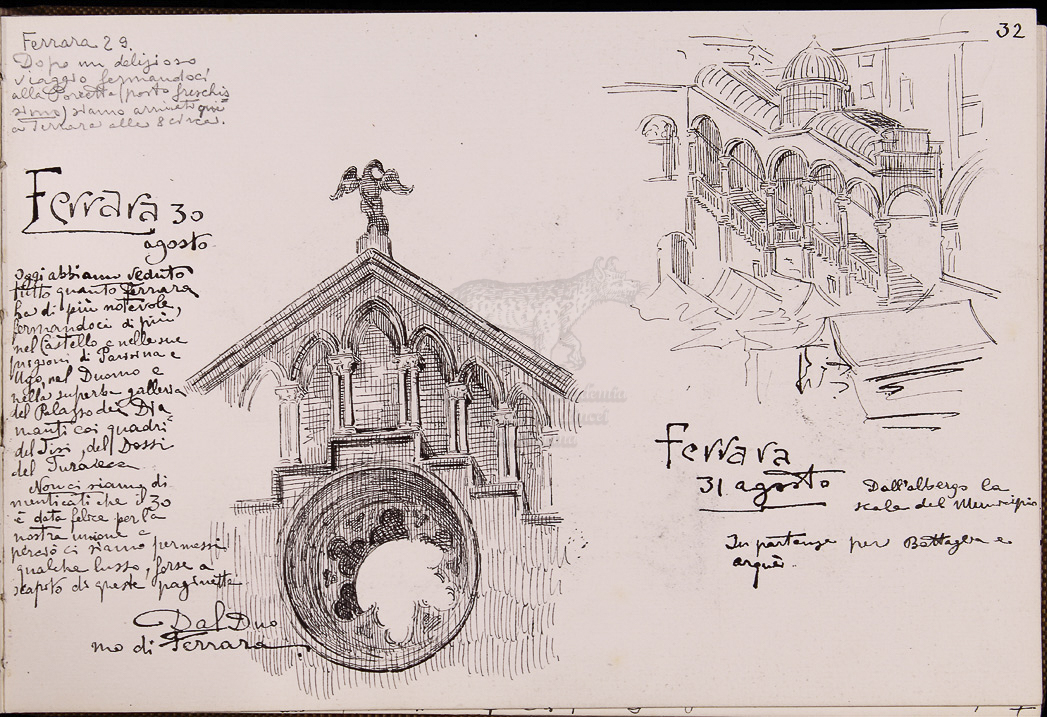 32
Ferrara 29.
Dopo un delizioso
viaggio fermandoci
alla Porretta (posto freschis
simo) siamo arrivati qui
a Ferrara alle 8 circa.
Ferrara 30
agosto
Oggi abbiamo veduto
tutto quanto Ferrara
ha di più notevole,
fermandoci di più,
nel Castello e nelle sue
prigioni di Parisina e
Ugo, nel Duomo e
nella superba galleria
del Palazzo dei Dia
manti coi quadri
del Tisi, del Dossi
del Tura
Non ci siamo di
menticati che il 30
è data felice per la
nostra unione e
perciò ci siamo permessi
qualche lusso, forse a
scapito di queste paginette
Dal Duo
mo di Ferrara
Ferrara
31 agosto
Dall'albergo la
scala del Municipio
In partenza per Battaglia e
arquà.